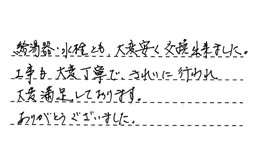 給湯器・水栓とも、大変安く交換出来ました。
工事も大変丁寧で、きれいに行われ
大変満足しております。
ありがとうございました。